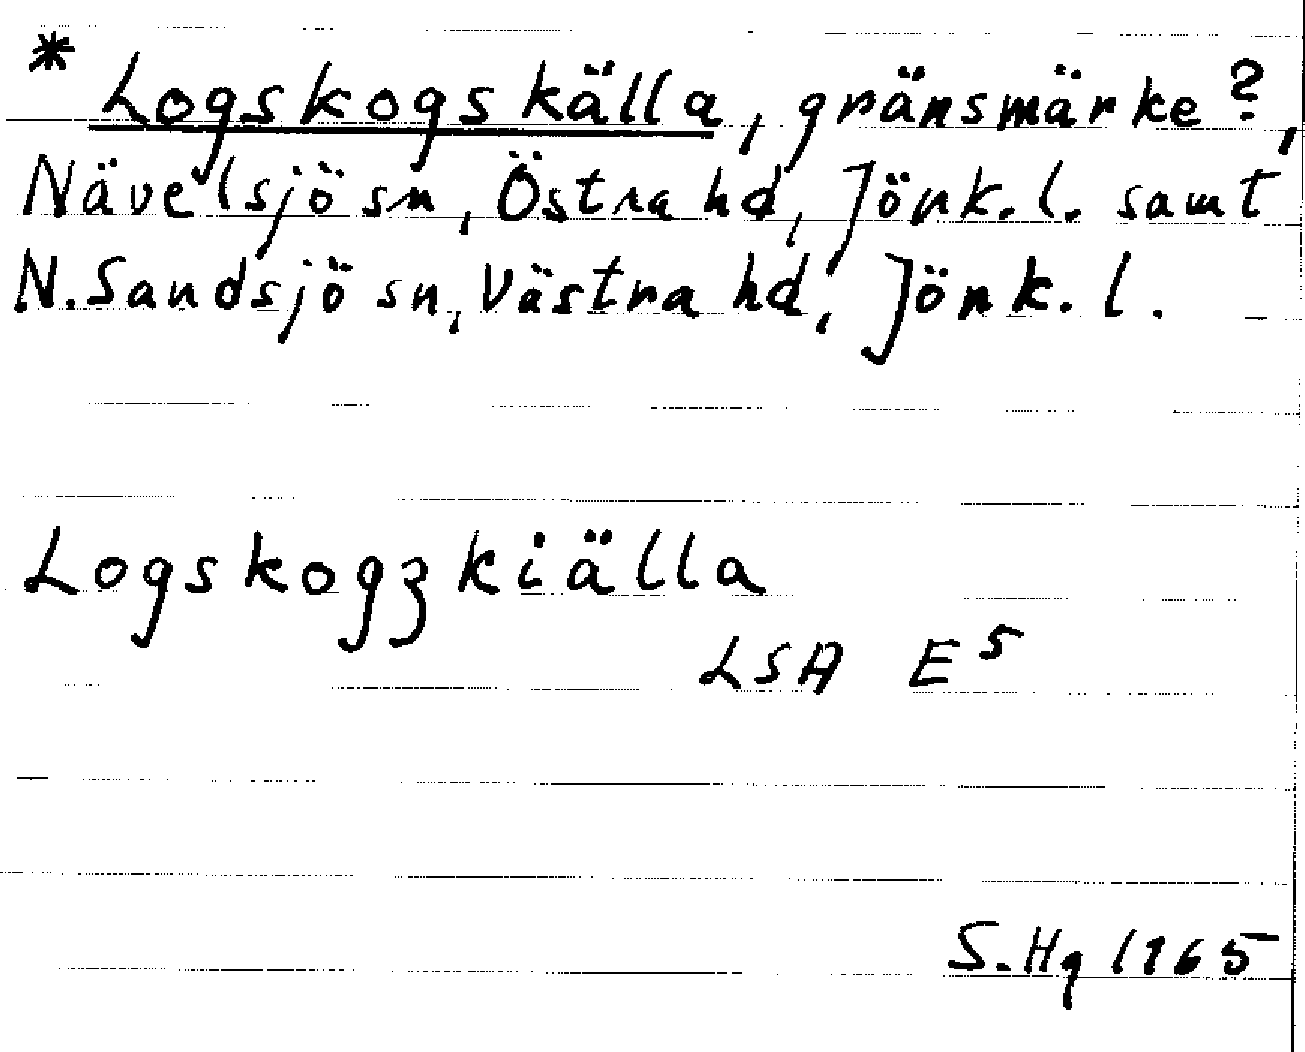 * Logskogskälla, gränsmärke?,
Nävelsjö sn, Östra hd, Jönk.l. samt
N.Sandsjö sn, Västra hd, Jönk.l.
Logskogzkiälla
LSA E5
S.Hg 1965